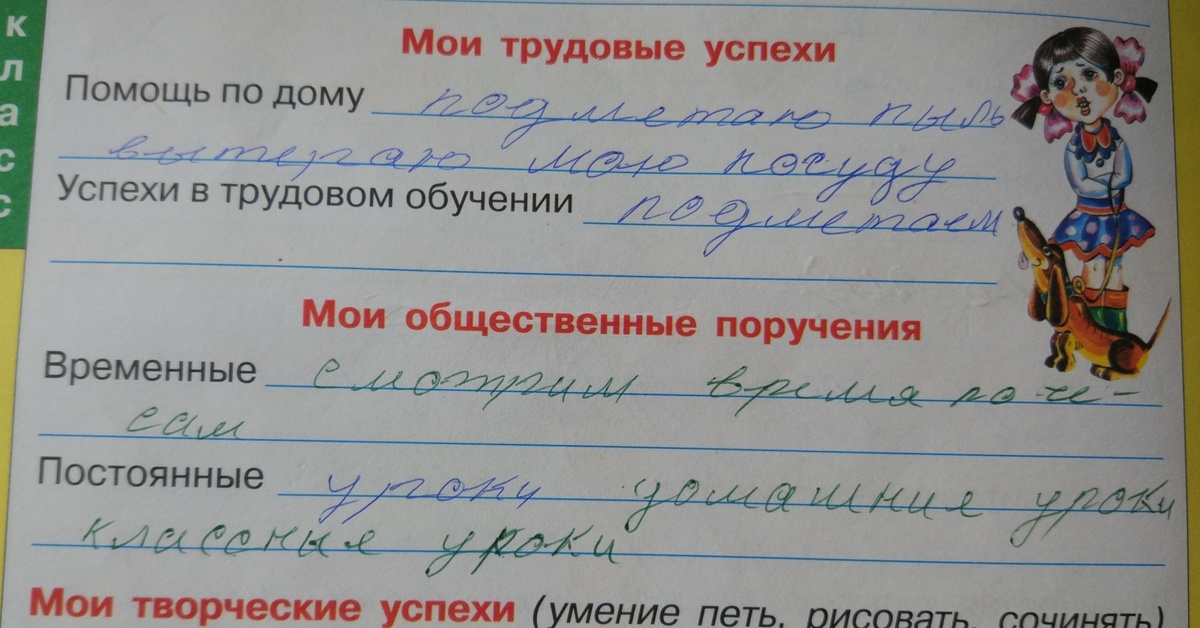 к
л
а
с
с
Мои трудовые успехи
Помощь по дому подметаю пыль
вытераю мою посуду
Успехи в трудовом обучении подметаем
Мои общественные поручения
Временные смотрим время по че-
сам
Постоянные уроки домашние уроки
классные уроки
Мои творческие успехи (умение петь, рисовать, сочинять)